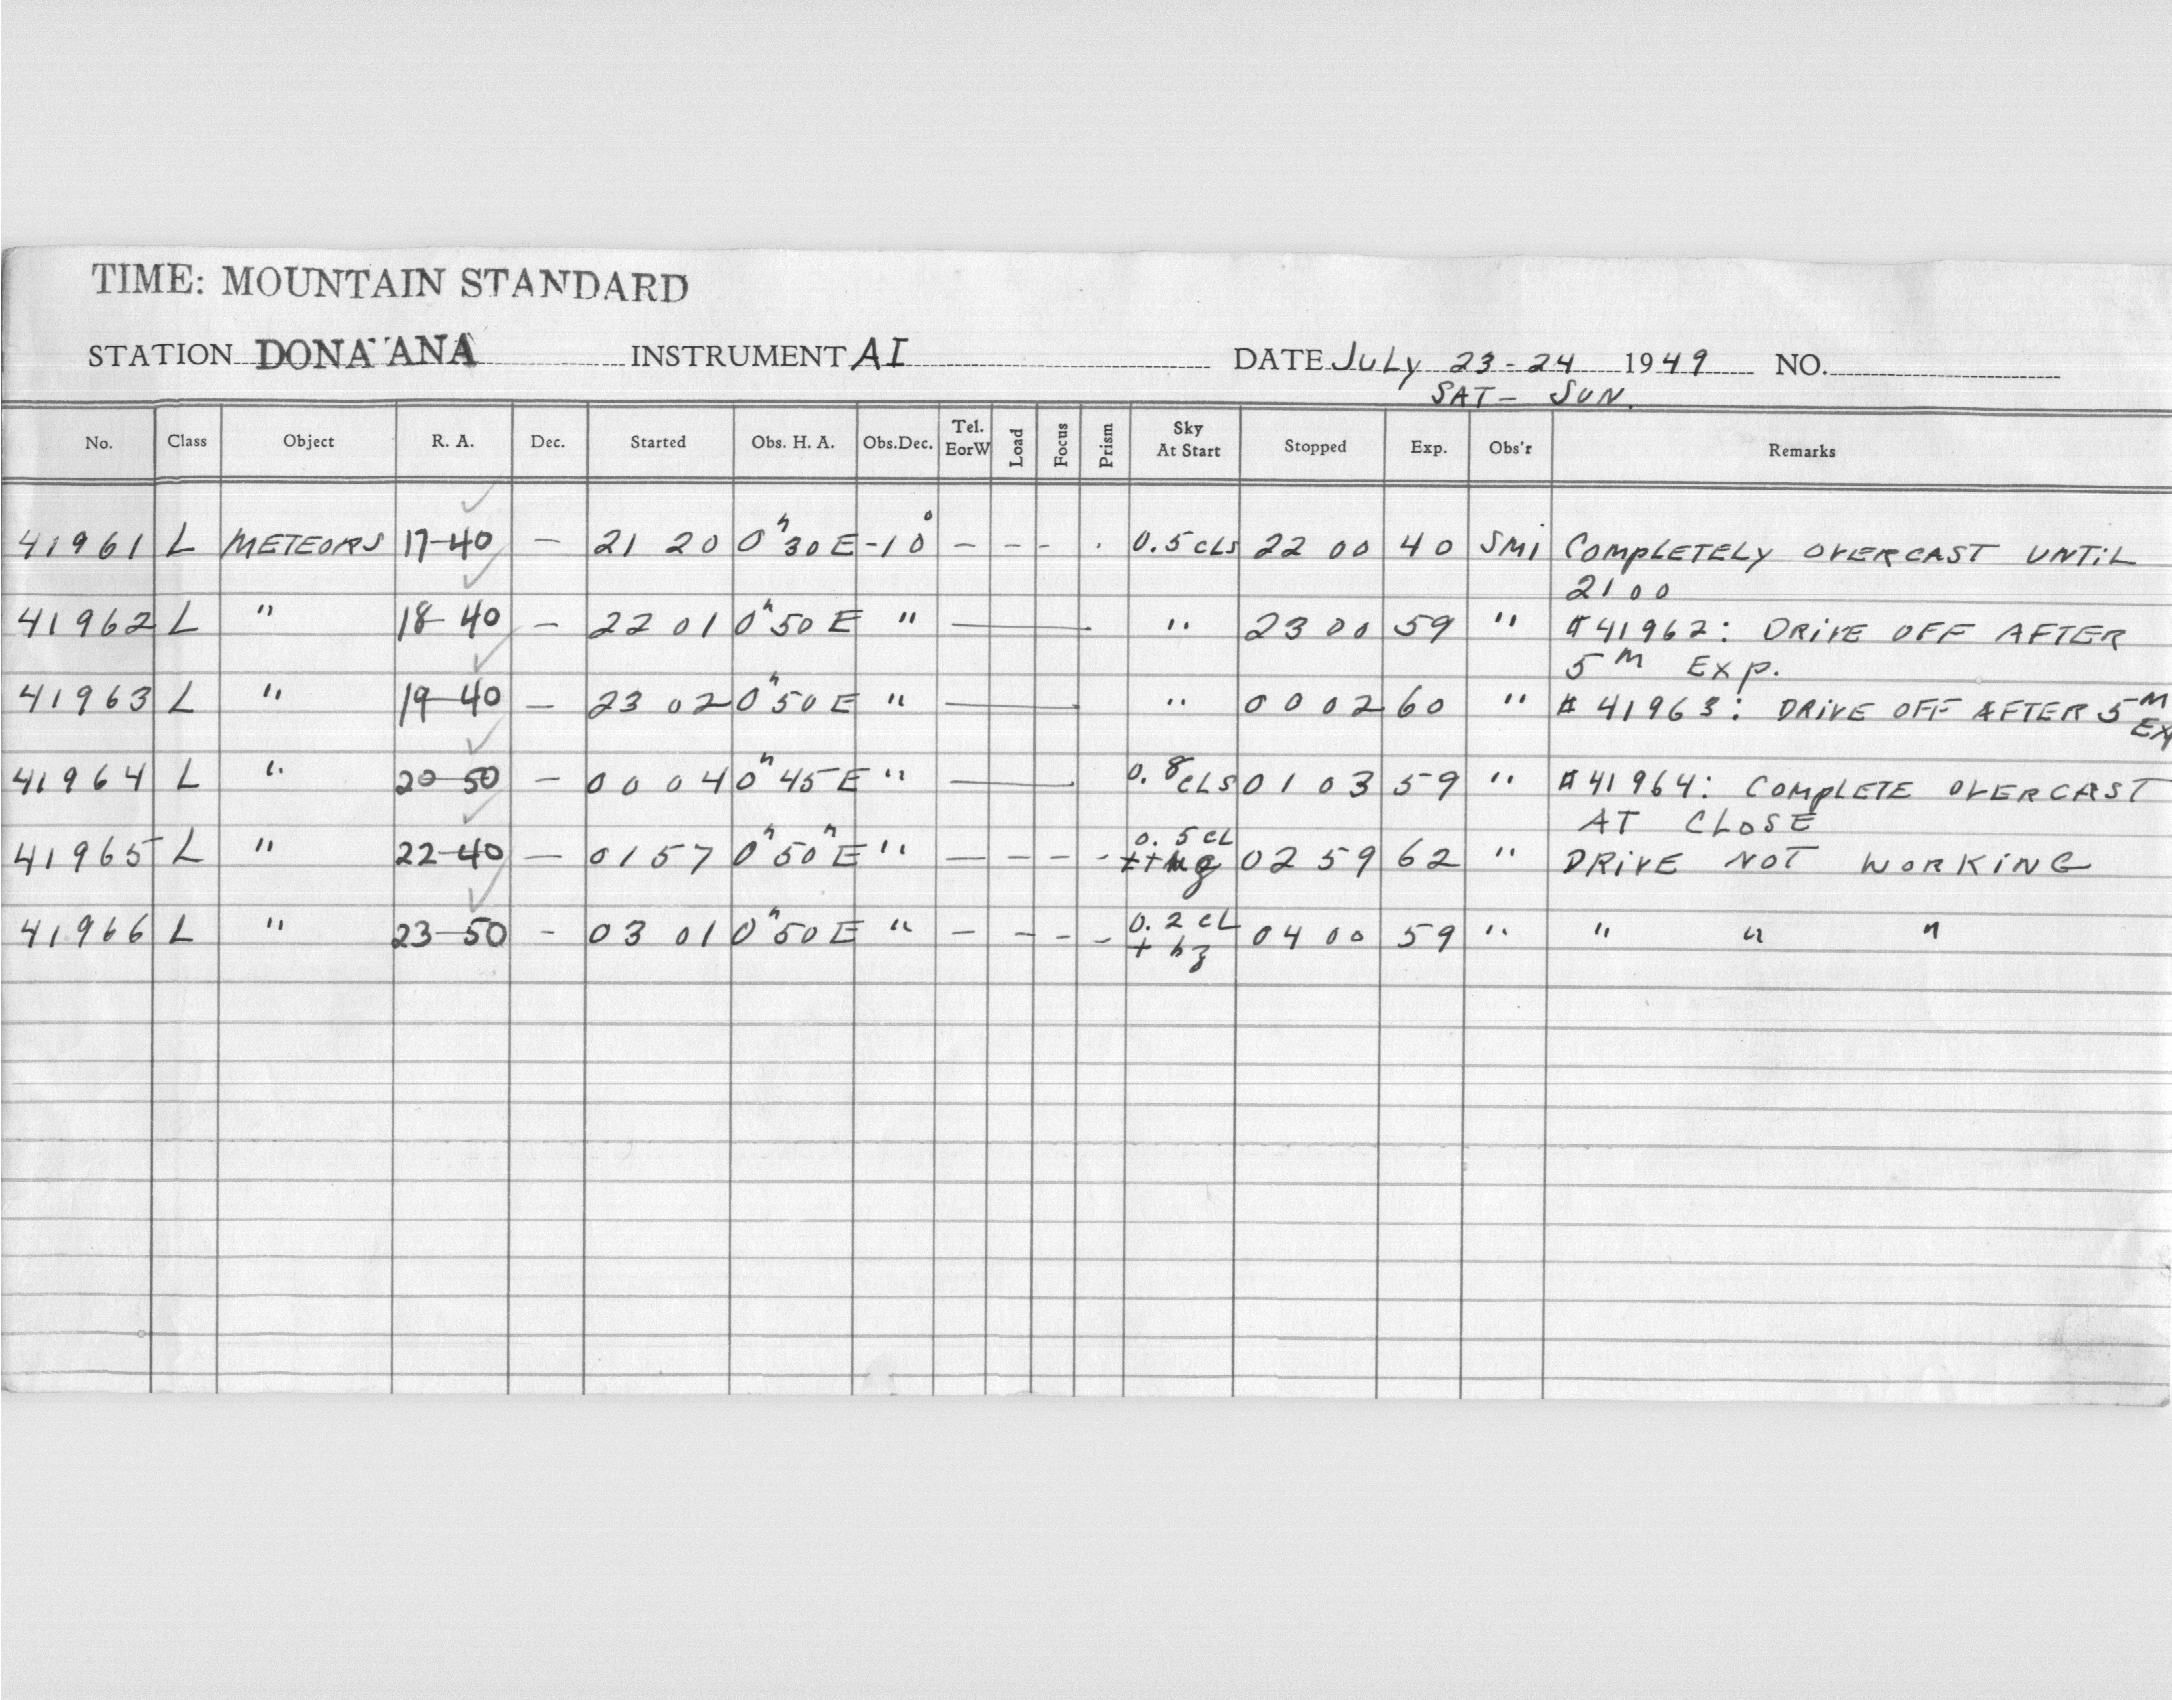 TIME: MOUNTAIN STANDARD
STATION DONA ANA INSTRUMENT AI DATE JULY 23-24 1949 NO.
SAT- SUN.
No. Class Object R. A. Dec. Started Obs. H. A. Obs.Dec. Tel. EorW Load Focus Prism Sky At Start Stopped Exp. Obs'r Remarks
41961 L METEORS 17-40 — 21 20 0h30E -10° — - - - 0.5 cLs 22 00 40 SMi COMPLETELY OVERCAST UNTIL
2100
41962 L " 18-40 — 22 01 0h50E " — " 23 00 59 " #41962: DRIVE OFF AFTER
5M EXP.
41963 L " 19-40 — 23 02 0h50E " — " 00 02 60 " #41963: DRIVE OFF AFTER 5M
EX
41964 L " 20-50 — 00 04 0h45E " — 0.8 cLs 01 03 59 " #41964: COMPLETE OVERCAST
AT CLOSE
41965 L " 22-40 — 01 57 0h50hE " — - - - 0.5 cL 02 59 62 " DRIVE NOT WORKING
41966 L " 23-50 - 03 01 0h50E " — - - - 0.2 cL + hz 04 00 59 " " " "